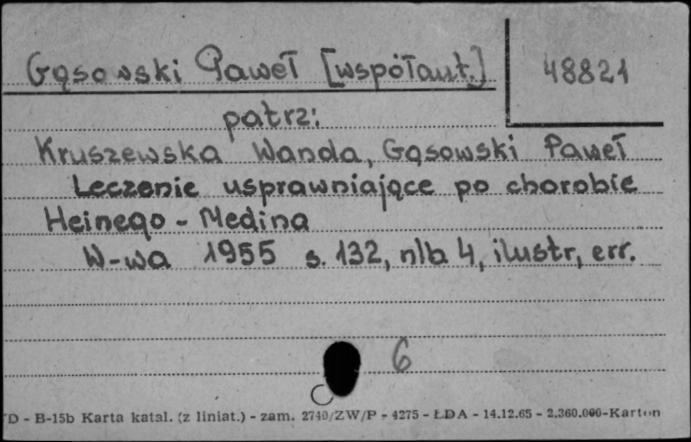 Gąsowski Paweł [współaut.] 48821
patrz:
Kruszewska Wanda, Gąsowski Paweł
Leczenie usprawniające po chorobie
Heinego - Medina
W-wa 1955 s. 132, nlb 4, ilustr, err.
6
D - B-15b Karta katal. (z liniat.) - zam. 2740/ZW/P - 4275 - ŁDA - 14.12.65 - 2.360.000 - Karton